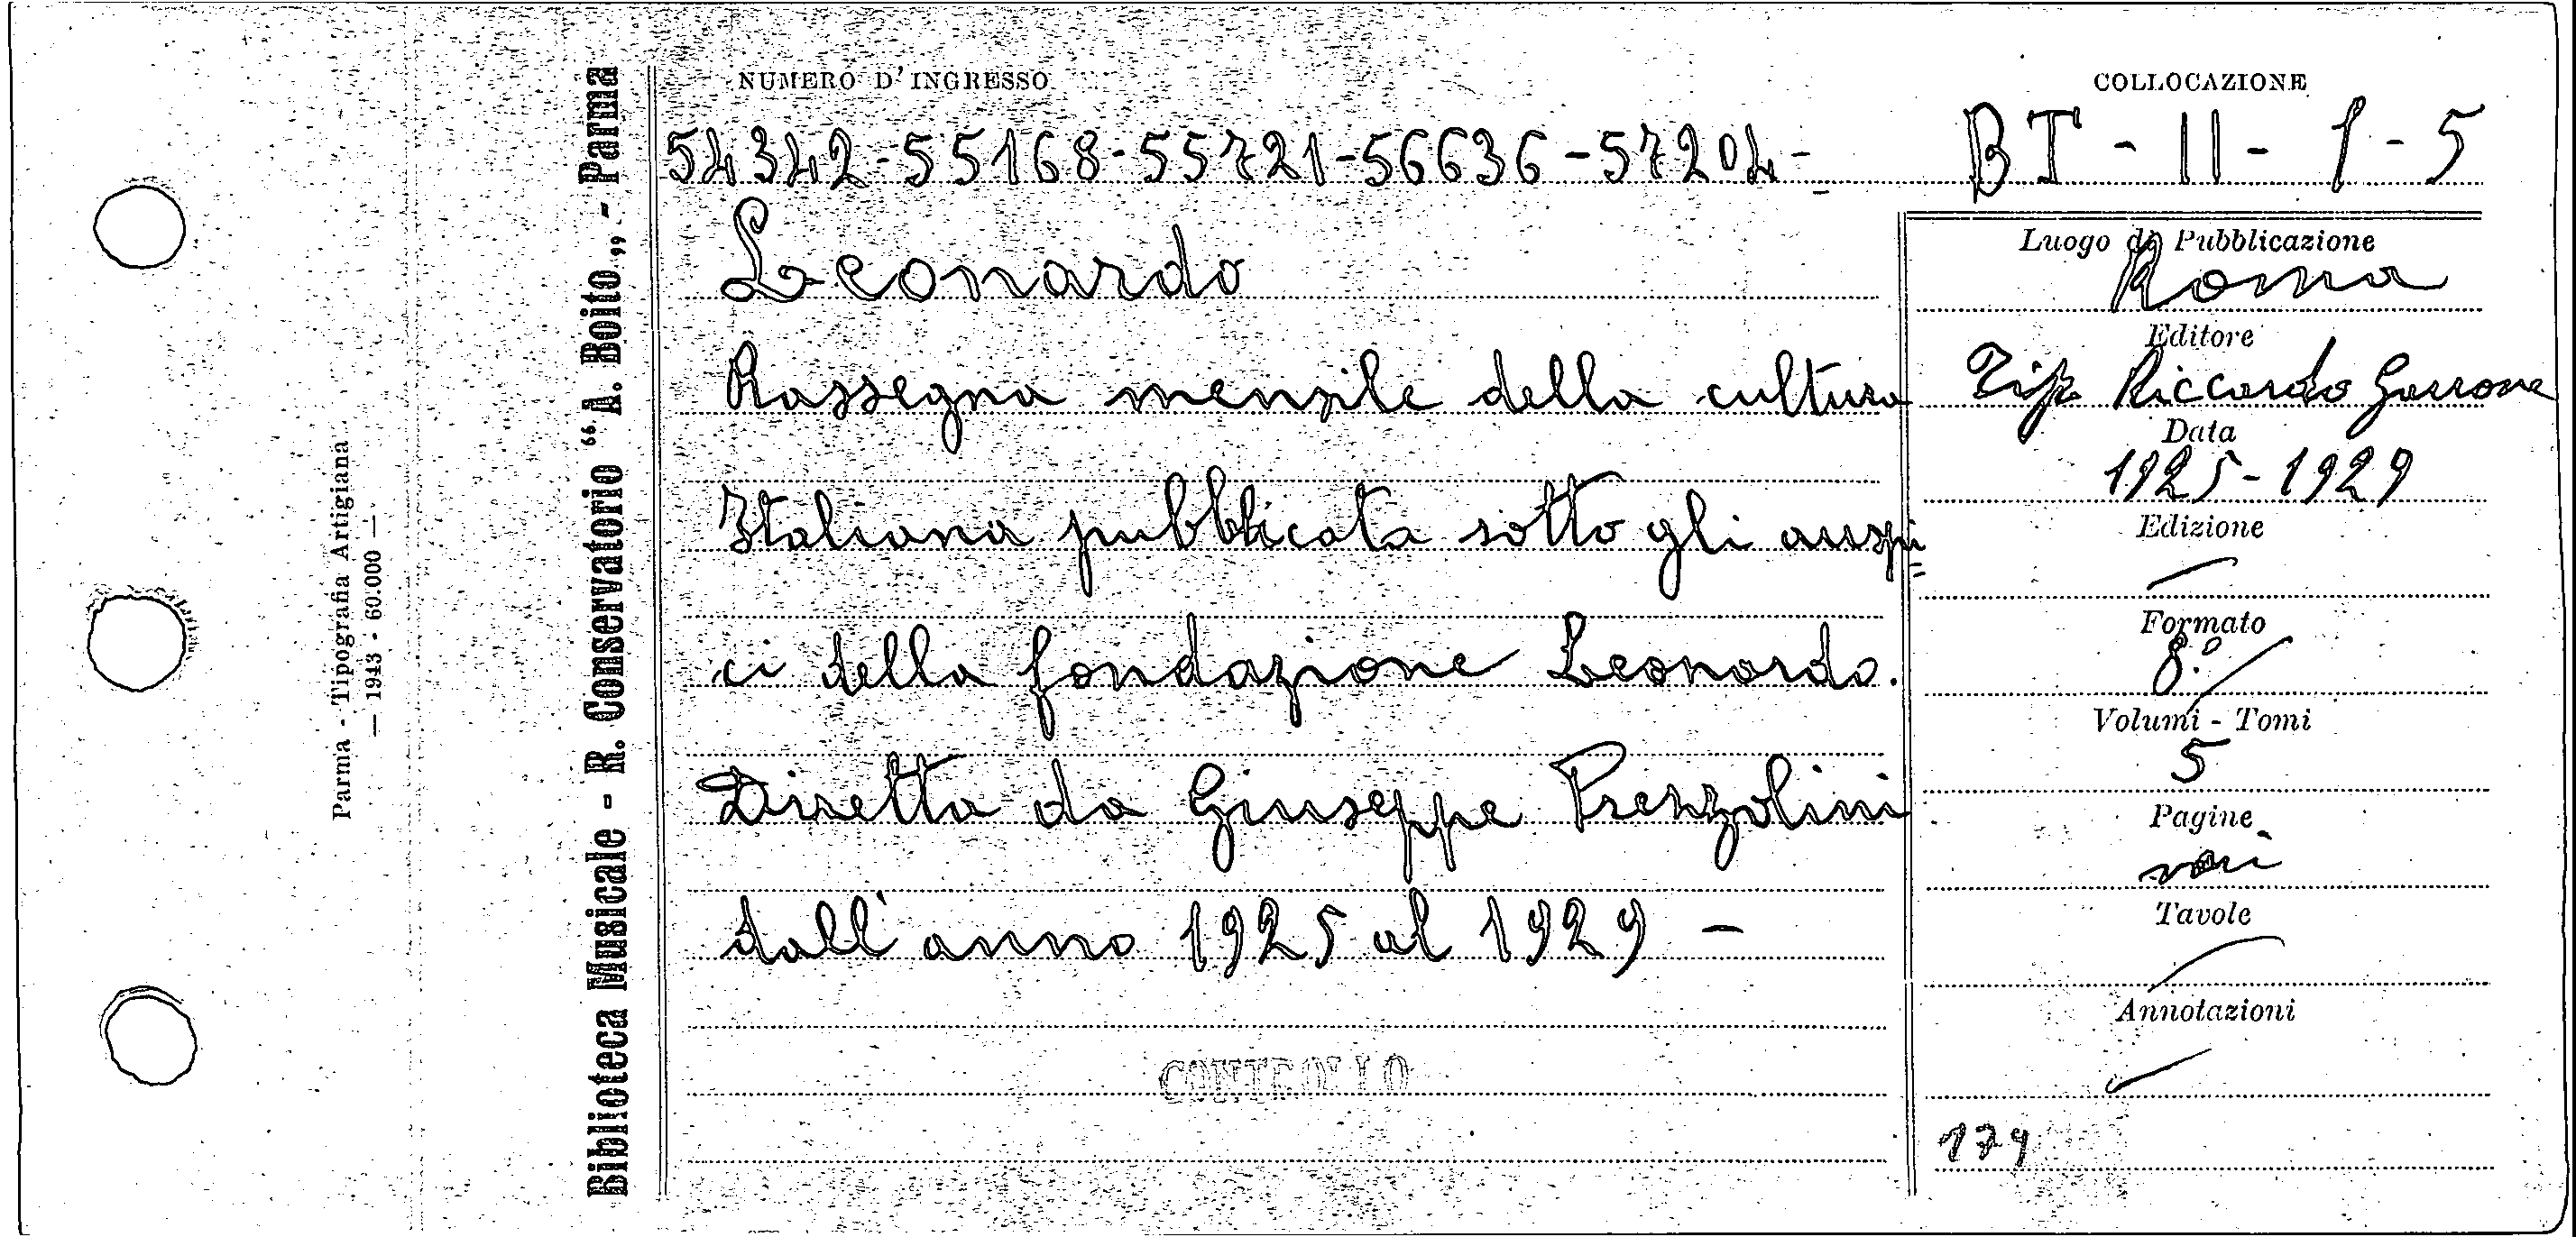 NUMERO D'INGRESSO
54342-55168-55721-56636-57204-
COLLOCAZIONE
BT - II - 1 - 5
Leonardo
Rassegna mensile della cultura
Italiana pubblicata sotto gli auspi=
ci della fondazione Leonardo.
Diretta da Giuseppe Prenzolini
dall'anno 1925 al 1929 -
CONTROLLO
Luogo di Pubblicazione
Roma
Editore
Tip. Riccardo Garrone
Data
1925-1929
Edizione
Formato
8.°
Volumi - Tomi
5
Pagine
vari
Tavole
Annotazioni
179
Biblioteca Musicale - R. Conservatorio “ A. Boito „ - Parma
Parma - Tipografia Artigiana
— 1943 - 60.000 —